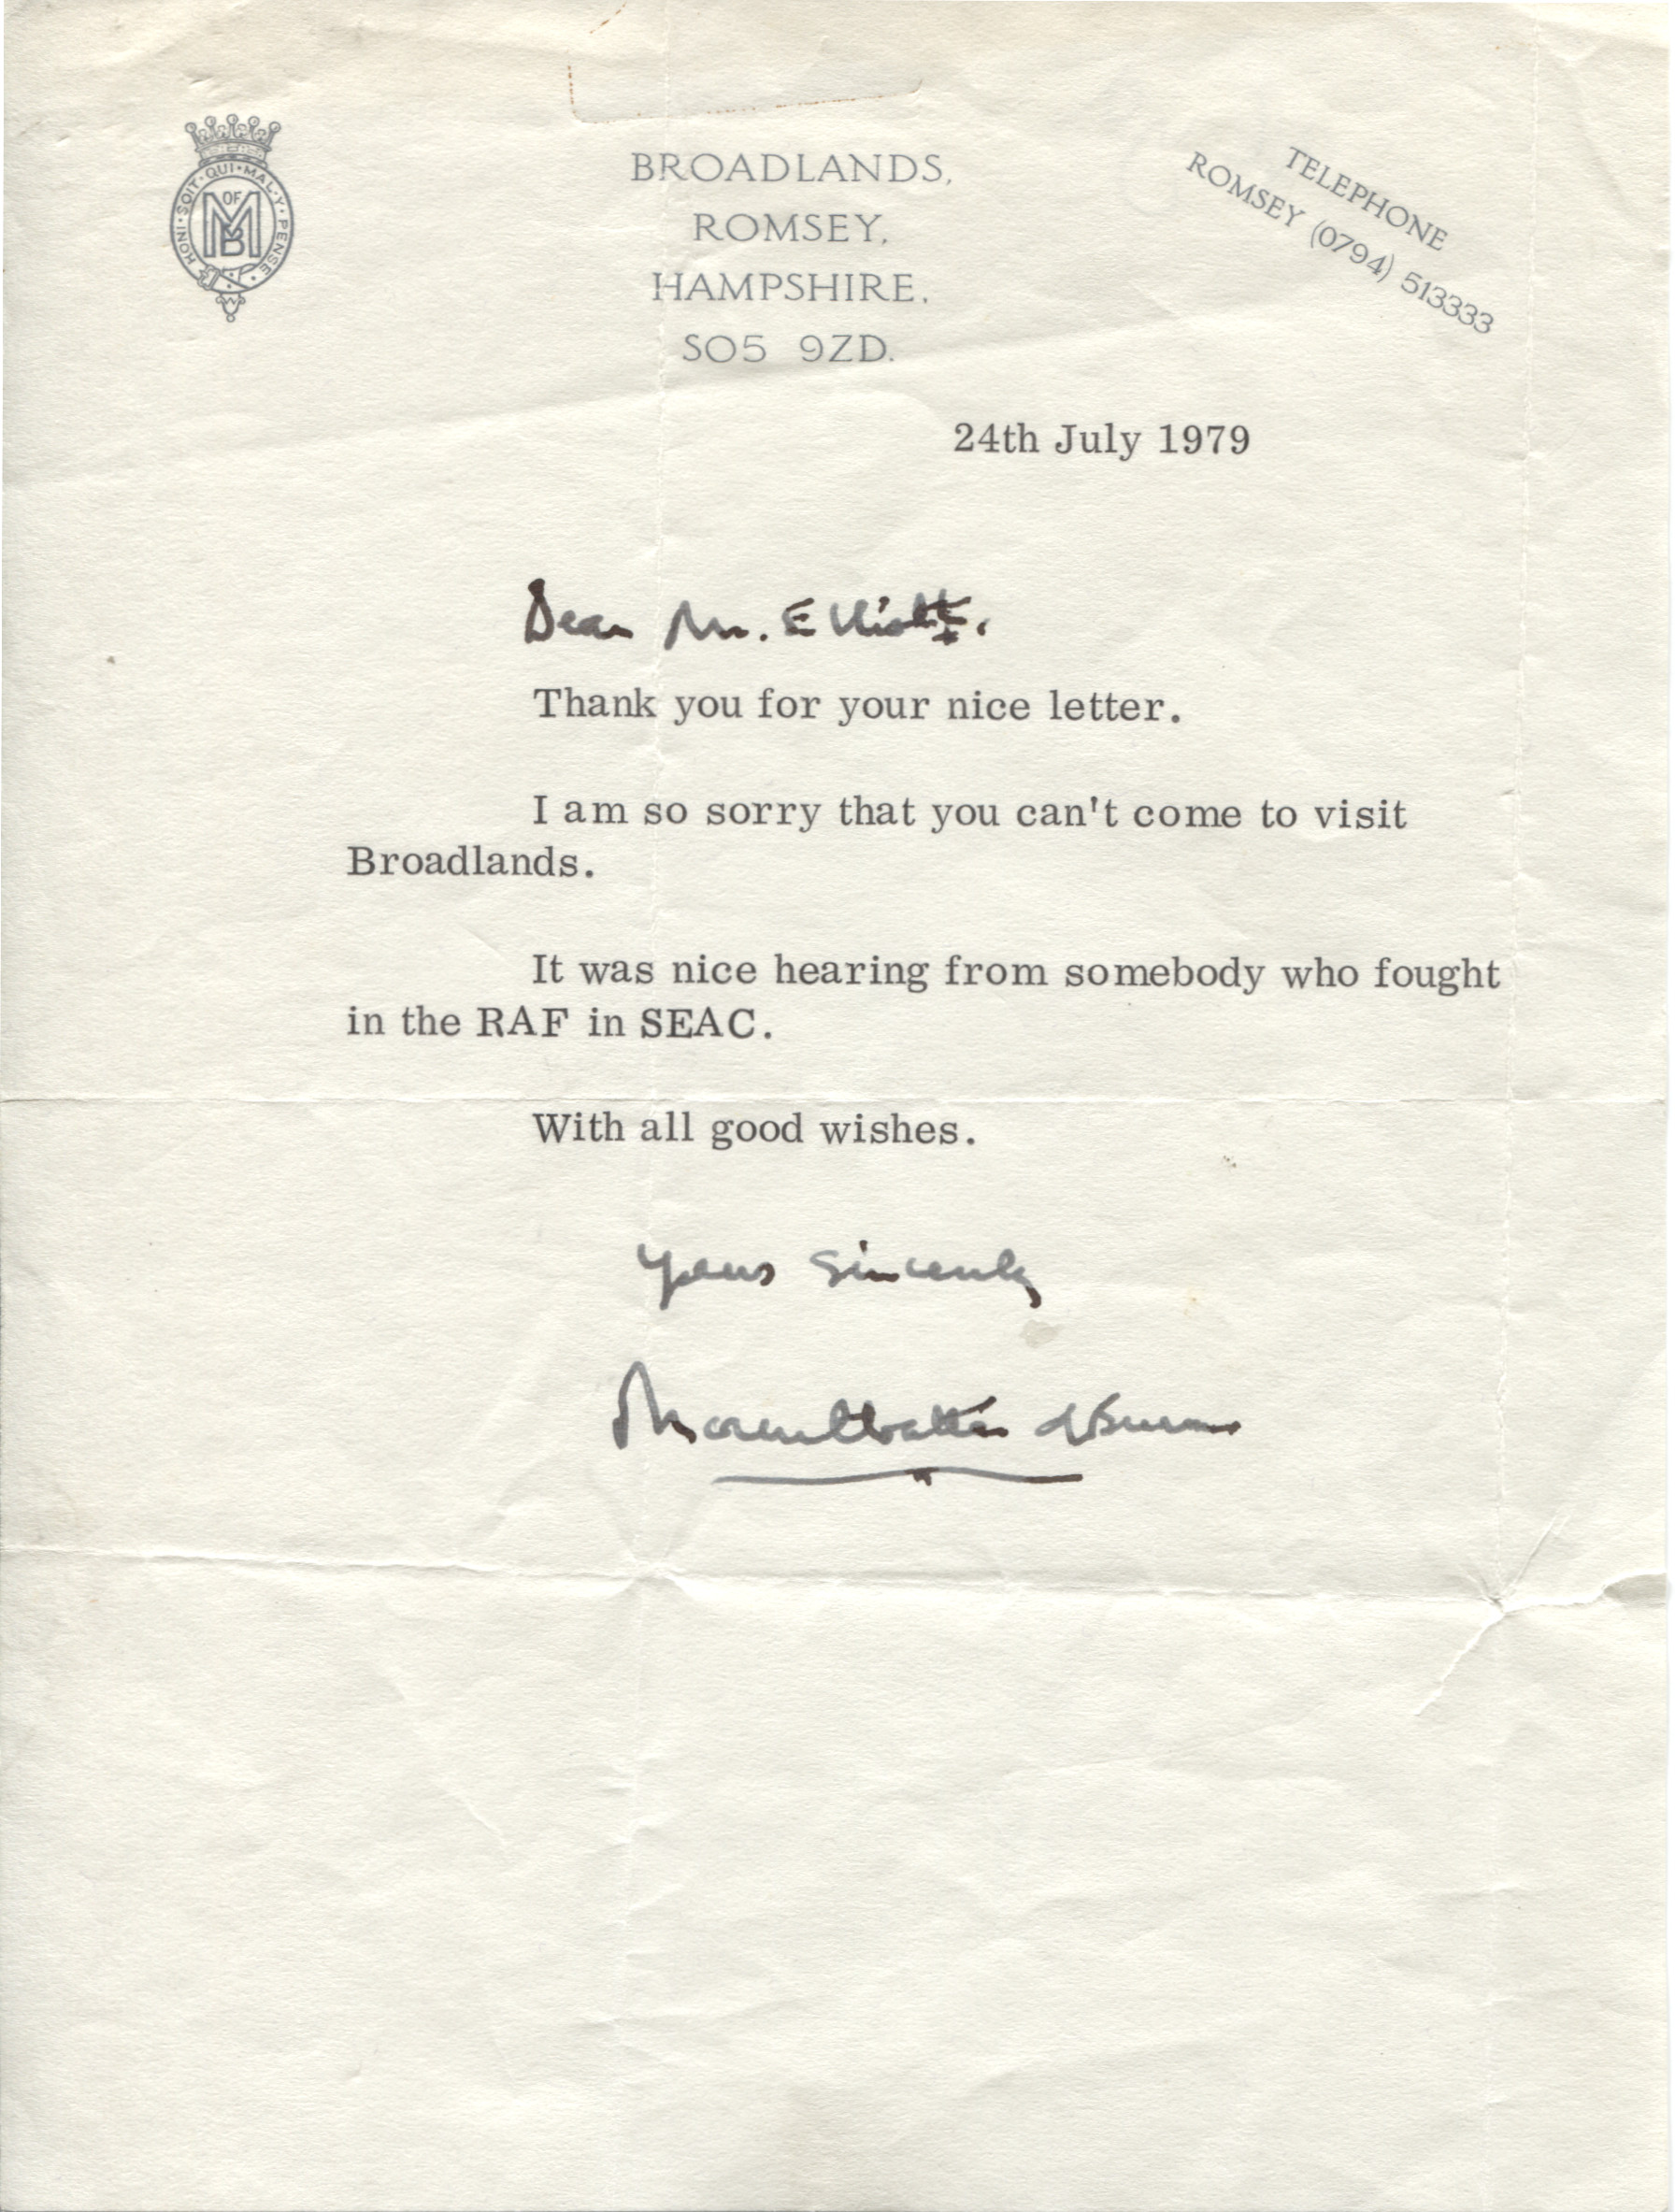 HONI · SOIT · QUI · MAL · Y · PENSE
M OF B
BROADLANDS,
ROMSEY,
HAMPSHIRE.
SO5 9ZD.
TELEPHONE
ROMSEY (0794) 513333
24th July 1979
Dear Mr. Elliott,
Thank you for your nice letter.
I am so sorry that you can't come to visit
Broadlands.
It was nice hearing from somebody who fought
in the RAF in SEAC.
With all good wishes.
Yours Sincerely
Mountbatten of Burma